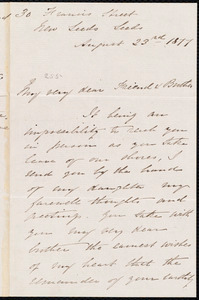 30 Francis Street
New Leeds Leeds
August 23rd 1877
My very dear Friend & Brother
It being an
impossibility to reach you
in person as you take
leave of our shores, I
send you by the hands
of my daughter my
farewell thoughts and
greeting. You take with
you my very dear
brother the earnest wishes
of my heart that the
remainder of your earthly